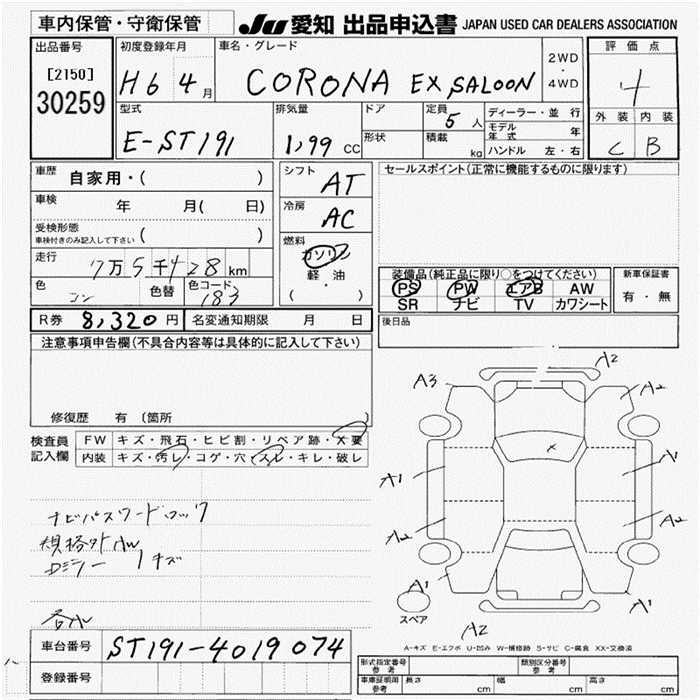 車内保管・守衛保管 JU 愛知 出品申込書 JAPAN USED CAR DEALERS ASSOCIATION
出品番号 初度登録年月 車名・グレード 2WD・4WD 評価点
[2150] 30259 H6 4月 CORONA EX SALOON 4
型式 排気量 ドア 定員 5人 ディーラー・並行 外装 内装
E-ST191 1,99 CC 形状 積載 kg モデル年式 年 C B
ハンドル 左・右
車歴 自家用・( ) シフト AT セールスポイント(正常に機能するものに限ります)
車検 年 月( 日) 冷房 AC
受検形態 ( )
車検付きのみ記入して下さい
燃料 ガソリン
走行 7万5千428km 軽油
・
( )
装備品(純正品に限り○をつけてください) 新車保証書
色 コン 色替 色コード 183 PS PW エアB AW 有・無
SR ナビ TV カワシート
R券 8,320円 名変通知期限 月 日 後日品
注意事項申告欄(不具合内容等は具体的に記入して下さい)
修復歴 有 〔箇所 〕
検査員記入欄 FW キズ・飛石・ヒビ割・リペア跡・X要
内装 キズ・汚レ・コゲ・穴・スレ・キレ・破レ
A2
A3 A2
A1 A1
A2 A2
A1 A1
スペア
A2
ナビパスワードロック
規格外AW
キズ
A-キズ E-エクボ U-凹み W-補修跡 S-サビ C-腐食 XX-交換済
車台番号 ST191-4019074
登録番号
形式指定番号 参考 類別区分番号 参考
車庫証明用 参考 長さ cm 幅 cm 高さ cm